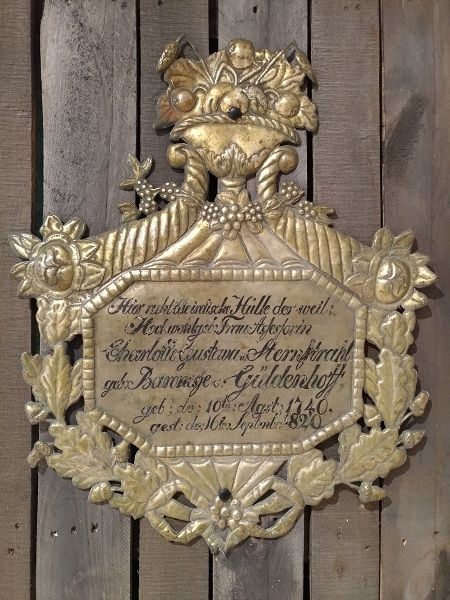 Hier ruht die irdische Hülle der weil:
Hochwohlgeb: Frau Assessorin
Charlotte Gustava v. Sternstrahl
geb: Baronesse v: Güldenhoff
geb: d: 10ten Agst: 1740.
gest: d: 16ten Septembr: 820.